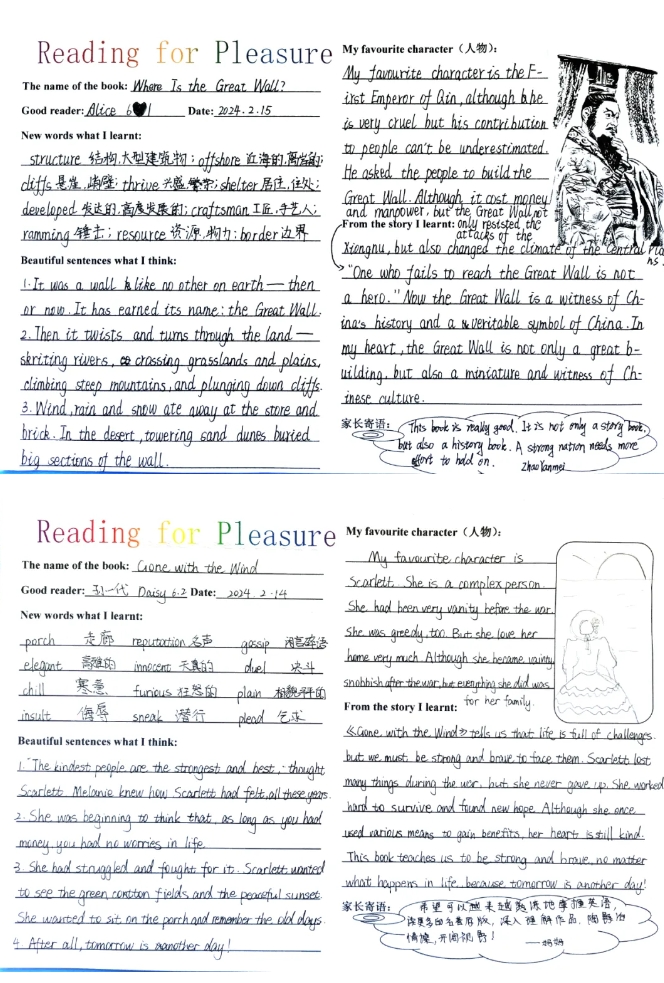 Reading for Pleasure
The name of the book: Where Is the Great Wall?
Good reader: Alice 6 1 Date: 2024.2.15
New words what I learnt:
structure 结构,大型建筑物; offshore 近海的,离岸的;
cliffs 悬崖,峭壁; thrive 兴盛,繁荣; shelter 居住,住处;
developed 发达的,高度发展的; craftsman 工匠,手艺人;
ramming 锤击; resource 资源,物力; border 边界
Beautiful sentences what I think:
1. It was a wall like no other on earth — then
or now. It has earned its name: the Great Wall.
2. Then it twists and turns through the land —
skriting rivers, crossing grasslands and plains,
climbing steep mountains, and plunging down cliffs.
3. Wind, rain and snow ate away at the store and
brick. In the desert, towering sand dunes buried
big sections of the wall.
My favourite character（人物）:
My favourite character is the F-
irst Emperor of Qin, although he
is very cruel but his contribution
to people can't be underestimated.
He asked the people to build the
Great Wall. Although it cost money
and manpower, but the Great Wall not
only resisted the
attacks of the
Xiongnu, but also changed the climate of the Central Plai
ns.
From the story I learnt:
"One who fails to reach the Great Wall is not
a hero." Now the Great Wall is a witness of Ch-
ina's history and a veritable symbol of China. In
my heart, the Great Wall is not only a great b-
uilding, but also a miniature and witness of Ch-
inese culture.
家长寄语:
This book is really good. It is not only a story book,
but also a history book. A strong nation needs more
effort to hold on. Zhao Yanmei
Reading for Pleasure
The name of the book: Gone with the Wind
Good reader: 一代 Daisy 6.2 Date: 2024.2.14
New words what I learnt:
porch 走廊 reputation 名声 gossip 闲言碎语
elegant 高雅的 innocent 天真的 duel 决斗
chill 寒意 furious 狂怒的 plain 相貌平平的
insult 侮辱 sneak 潜行 plead 乞求
Beautiful sentences what I think:
1. "The kindest people are the strongest and best, thought
Scarlett. Melanie knew how Scarlett had felt, all these years.
2. She was beginning to think that, as long as you had
money, you had no worries in life.
3. She had struggled and fought for it. Scarlett wanted
to see the green contton fields and the peaceful sunset.
She wanted to sit on the porch and remember the old days.
4. After all, tomorrow is another day!
My favourite character（人物）:
My favourite character is
Scarlett. She is a complex person.
She had been very vanity before the war.
She was greedy, too. But she love her
home very much. Although she became vainty,
snobbish after the war, but everything she did was
for her family.
From the story I learnt:
《Gone with the Wind》 tells us that life is full of challenges.
but we must be strong and brave to face them. Scarlett lost
many things during the war, but she never gave up. She worked
hard to survive and found new hope. Although she once
used various means to gain benefits, her heart is still kind.
This book teaches us to be strong and brave, no matter
what happens in life, because tomorrow is another day!
家长寄语:
希望可以越来越熟练地掌握英语,
读更多的名著原版, 深入理解作品, 陶冶
情操, 开阔视野!
——妈妈